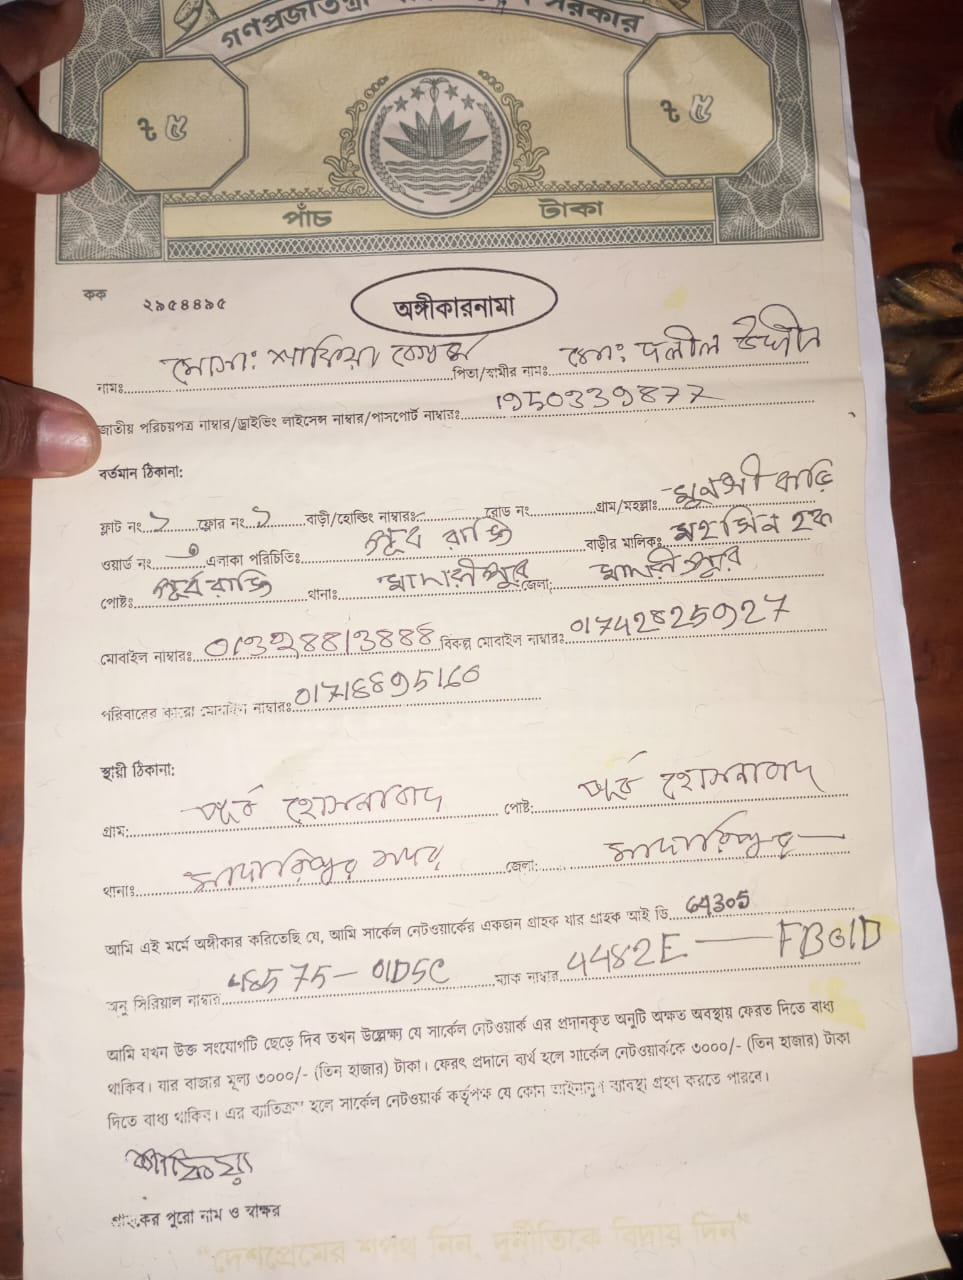 গণপ্রজাতন্ত্রী বাংলাদেশ সরকার
৳ ৫ ৳ ৫
পাঁচ টাকা
কক ২৯৫৪৪৯৫
অঙ্গীকারনামা
নামঃ মোসাঃ শাফিয়া বেগম পিতা/স্বামীর নামঃ মোঃ দলীল উদ্দীন
জাতীয় পরিচয়পত্র নাম্বার/ড্রাইভিং লাইসেন্স নাম্বার/পাসপোর্ট নাম্বারঃ 1950339877
বর্তমান ঠিকানা:
ফ্লাট নং ১ ফ্লোর নং ১ বাড়ী/হোল্ডিং নাম্বারঃ রোড নং গ্রাম/মহল্লাঃ মুনসী বাড়ি
ওয়ার্ড নং এলাকা পরিচিতিঃ পূর্ব রাস্তি বাড়ীর মালিকঃ মহসিন হক
পোষ্টঃ পূর্ব রাস্তি থানাঃ মাদারীপুর জেলা: মাদারীপুর
মোবাইল নাম্বারঃ বিকল্প মোবাইল নাম্বারঃ 01742825927
পরিবারের কারো মোবাইল নাম্বারঃ 01716895160
স্থায়ী ঠিকানা:
গ্রাম: পূর্ব হোসনাবাদ পোষ্ট: পূর্ব হোসনাবাদ
থানাঃ মাদারিপুর সদর জেলা: মাদারিপুর
আমি এই মর্মে অঙ্গীকার করিতেছি যে, আমি সার্কেল নেটওয়ার্কের একজন গ্রাহক যার গ্রাহক আই ডি 64305
অনু সিরিয়াল নাম্বার 48575-01D5C ম্যাক নাম্বার 4482E — FB01D
আমি যখন উক্ত সংযোগটি ছেড়ে দিব তখন উল্লেক্ষ্য যে সার্কেল নেটওয়ার্ক এর প্রদানকৃত অনুটি অক্ষত অবস্থায় ফেরত দিতে বাধ্য
থাকিব। যার বাজার মূল্য ৩০০০/- (তিন হাজার) টাকা। ফেরৎ প্রদানে ব্যর্থ হলে সার্কেল নেটওয়ার্ককে ৩০০০/- (তিন হাজার) টাকা
দিতে বাধ্য থাকিব। এর ব্যতিক্রম হলে সার্কেল নেটওয়ার্ক কর্তৃপক্ষ যে কোন আইনানুগ ব্যবস্থা গ্রহণ করতে পারবে।
শাফিয়া
গ্রাহকের পুরো নাম ও স্বাক্ষর
“দেশপ্রেমের শপথ নিন, দুর্নীতিকে বিদায় দিন”